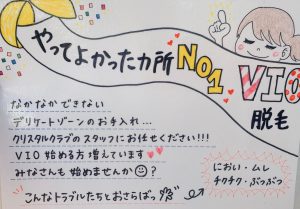 やってよかったカ所 NO1
VIO
脱毛
なかなかできない
デリケートゾーンのお手入れ...
クリスタルクラブのスタッフにお任せください!!!
VIO始める方増えています♥♥
みなさんも始めませんか☺?
こんなトラブルたちとおさらばっ
におい・ムレ
チクチク・ぶつぶつ